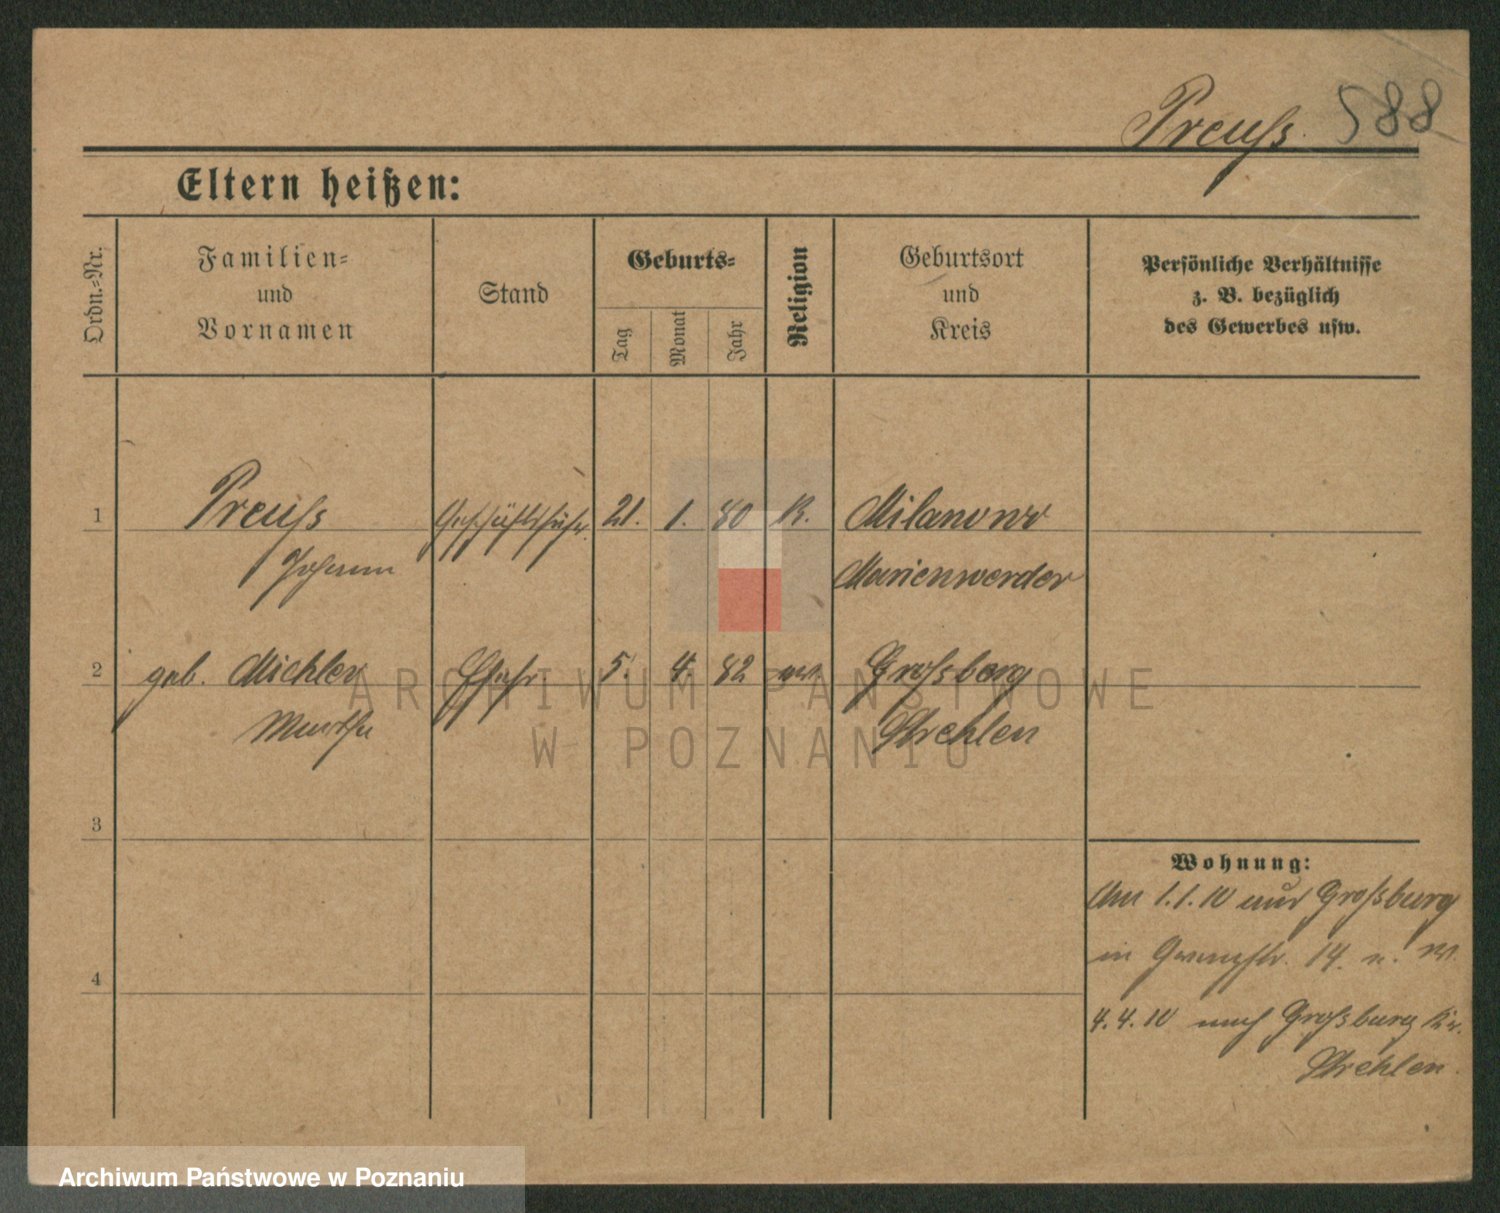 Preuß. 588
Eltern heißen:
Ordn.-Nr.
Familien-
und
Vornamen
Stand
Geburts-
Tag
Monat
Jahr
Religion
Geburtsort
und
Kreis
Persönliche Verhältnisse
z. B. bezüglich
des Gewerbes usw.
1 Preuß Geschäftsführ. 21. 1. 80 K. Milanowo
Johann Marienwerder
2 geb. Michler Ehefr 5. 4. 82 ev. Großberg
Martha Strehlen
3
4
Wohnung:
Am 1.1.10 aus Großburg
in 14. u. W.
4.4.10 nach Großburg Kr.
Strehlen.
ARCHIWUM PAŃSTWOWE
W POZNANIU
Archiwum Państwowe w Poznaniu